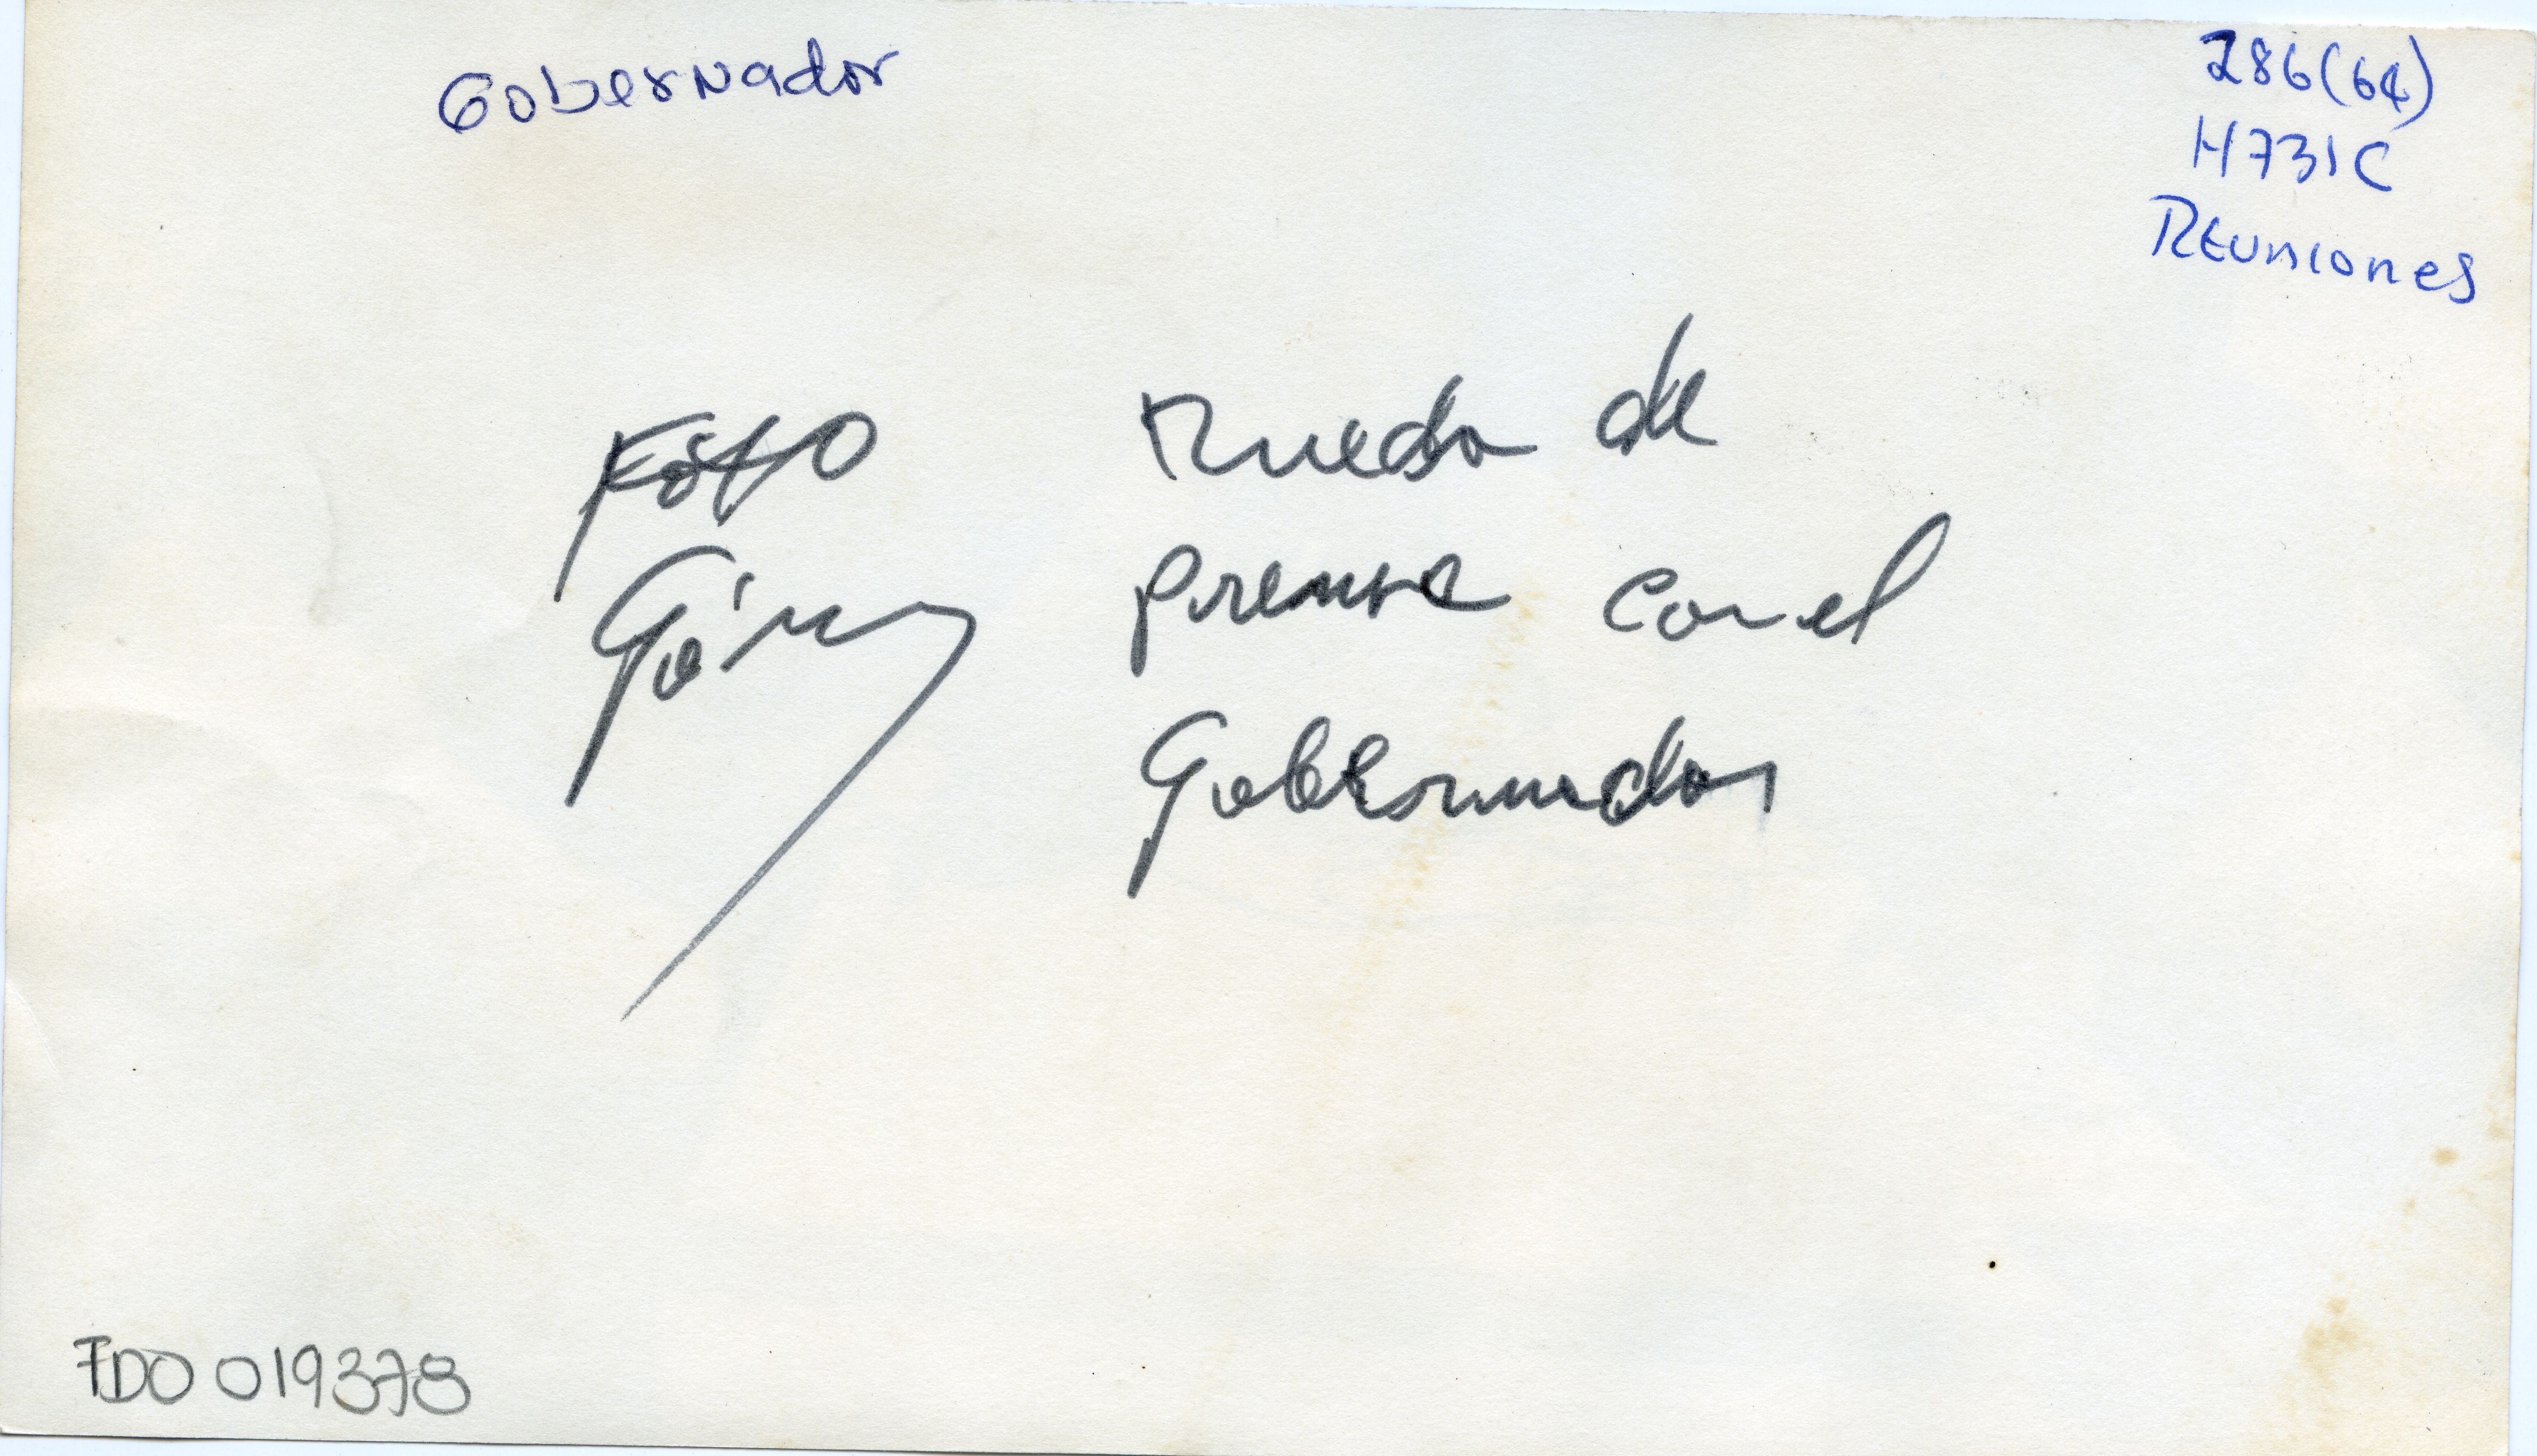 Gobernador
286(64)
H731C
REuniones
Foto
Gómez
Rueda de
prensa con el
Gobernador
FDO 019378